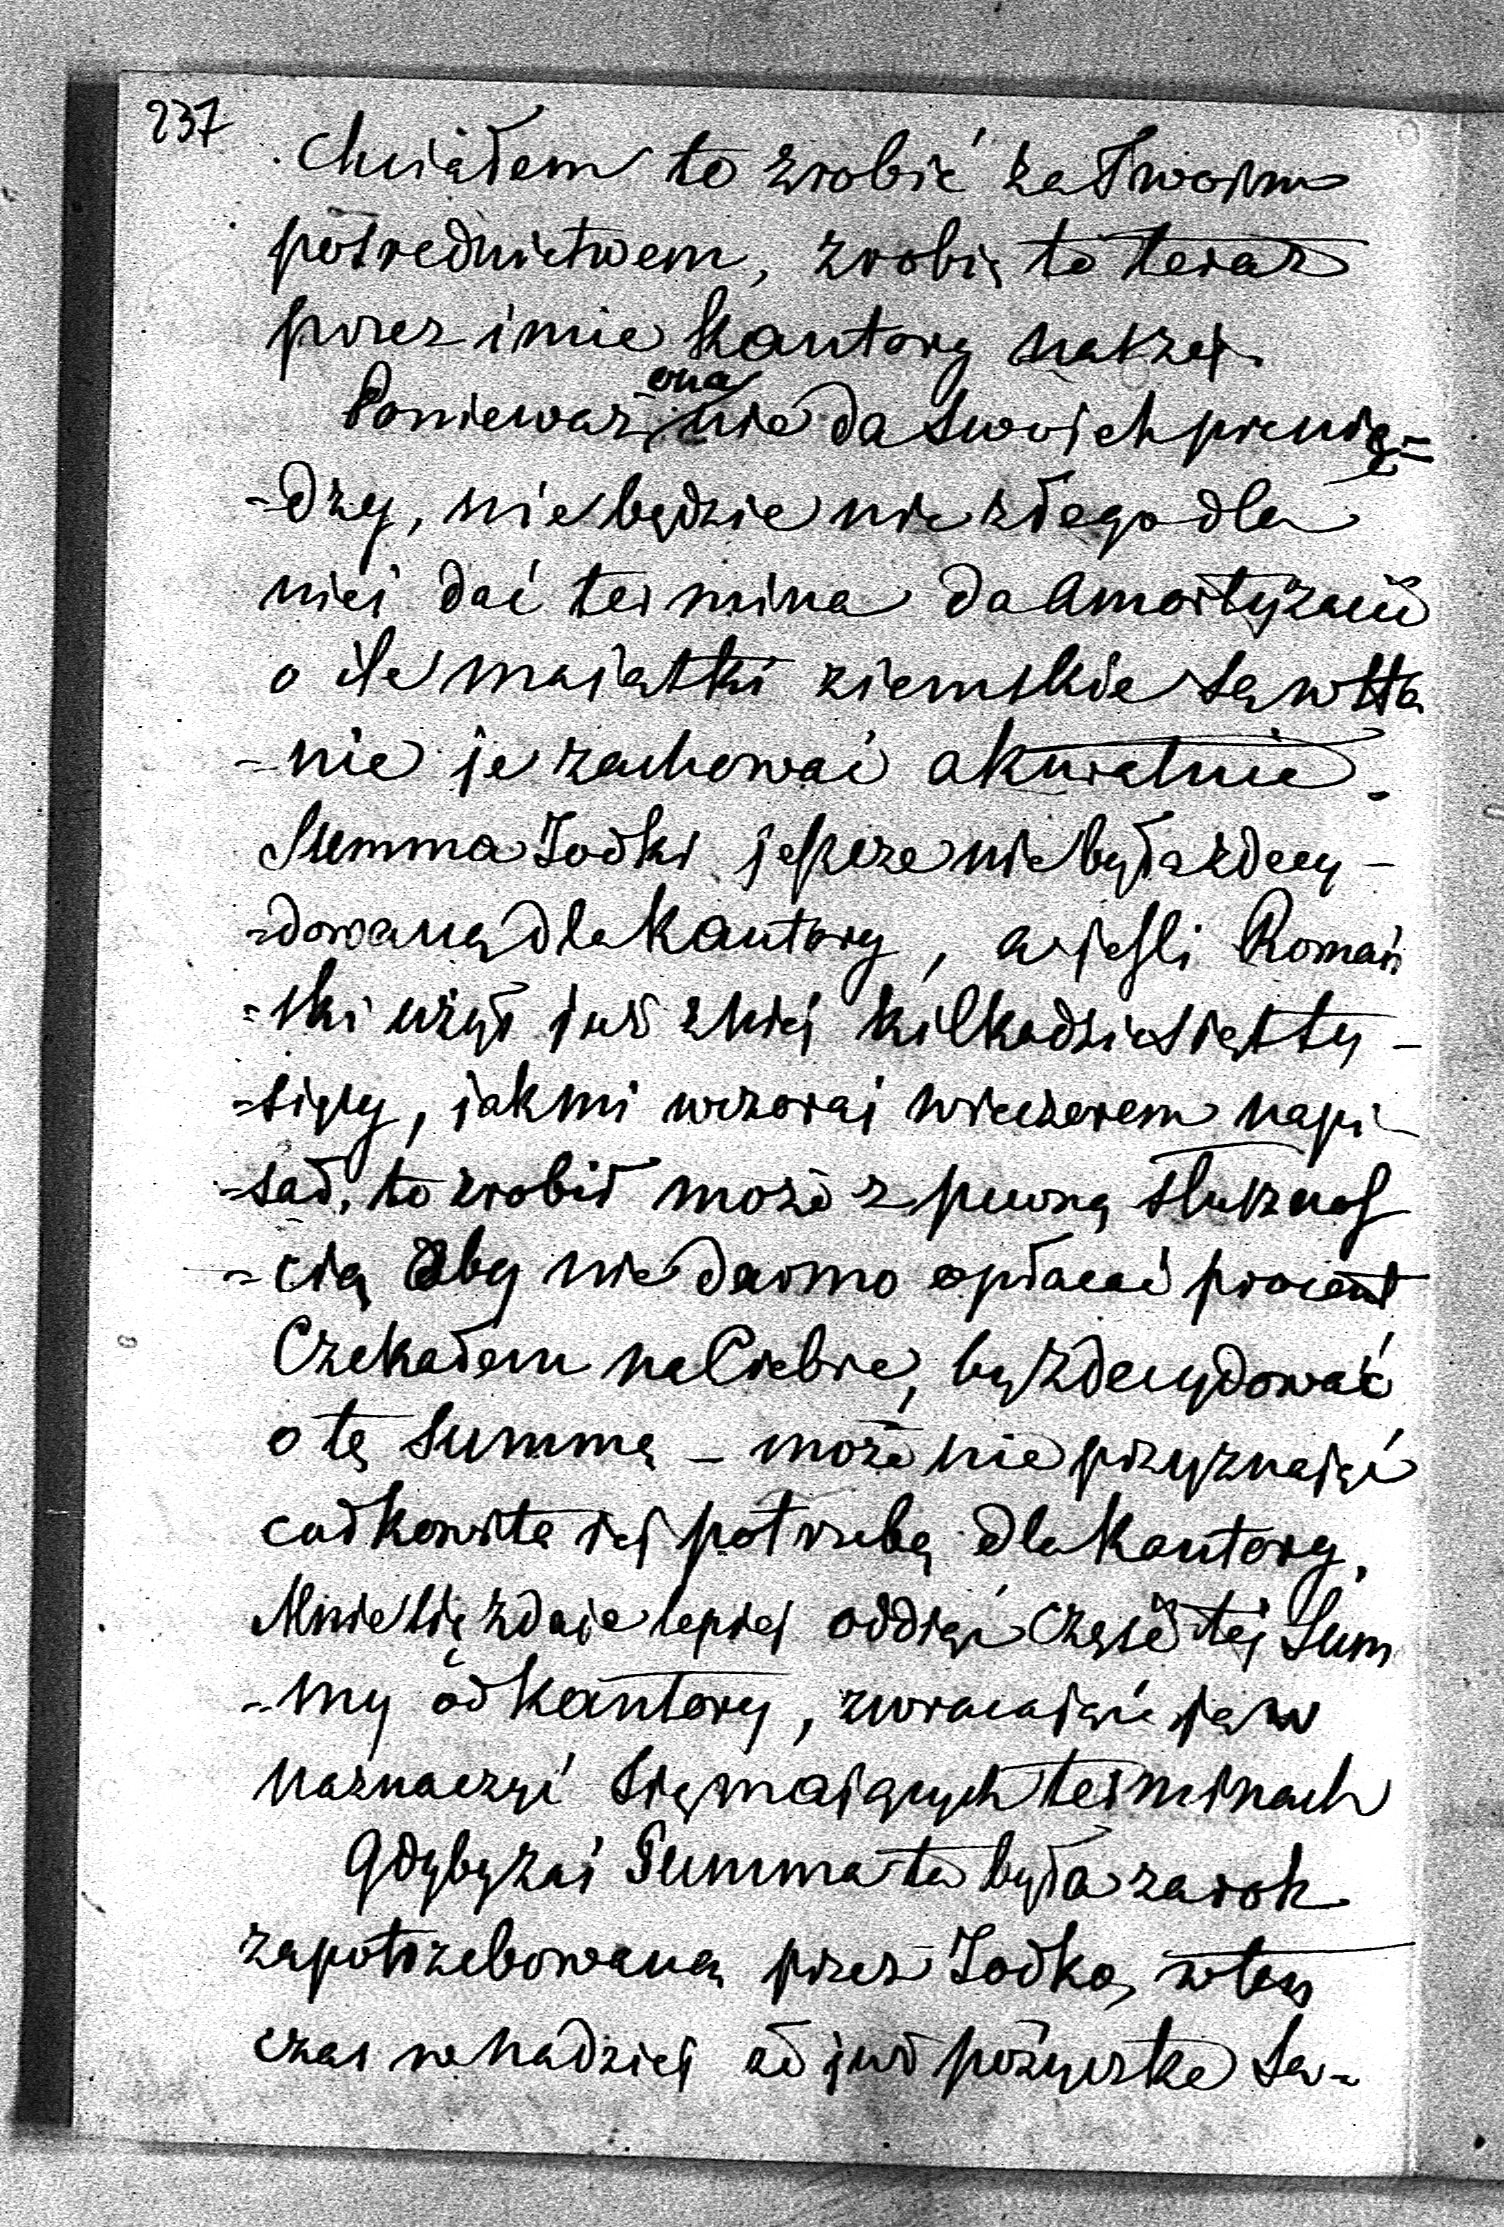 237
Chciałem to zrobić za Twoim
pośrednictwem, zrobię to teraz
przez imie Kantory naszej.
Ponieważ ona nie da swoich pienię=
-dzy, nie będzie nic złego dla
niej dać termina do Amortyzacii
o ile maiątki ziemskie są w sta
-nie je zachować akuratnie.
Summa Jodki jeszcze nie była zdecy-
-dowaną dla Kantory, a jeśli Romań
-ski użył już z niej kilkadziesiąt ty-
-sięcy, jak mi wczoraj wieczorem napi-
-sał, to zrobił może z pewną słusznoś
-cią aby nie darmo opłacać procent
Czekałem na Ciebie, by zdecydować
o tę Summę – może nie przyznając
całkowitą jej potrzebą dla Kantory.
Mnie się zdaje lepiej oddiąć część tej Sum
-my od Kantory, zwracając ją w
naznaczyć się maiących terminach
Gdyby zaś Summa ta była za rok
zapotrzebowaną przez Jodko, wten
czas w nadziei że już pożyczka Sa-